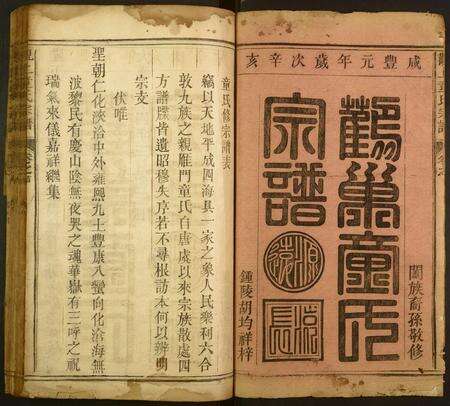 咸豐元年歲次辛亥
闔族裔孫敬修
鸛巢童氏
宗譜
源遠
流長
鍾陵胡均祥梓
童氏修宗譜表
竊以天地平成四海具一家之象人民樂利六合
敦九族之親雁門童氏自唐虞以來宗族散處四
方譜牒皆遺昭穆失序若不尋根訪本何以辨明
宗支
伏唯
聖朝仁化浹洽中外雍熙九土豐康八蠻向化滄海無
波黎民有慶山陰無夜哭之魂華嶽有三呼之祝
瑞氣來儀嘉祥繼集